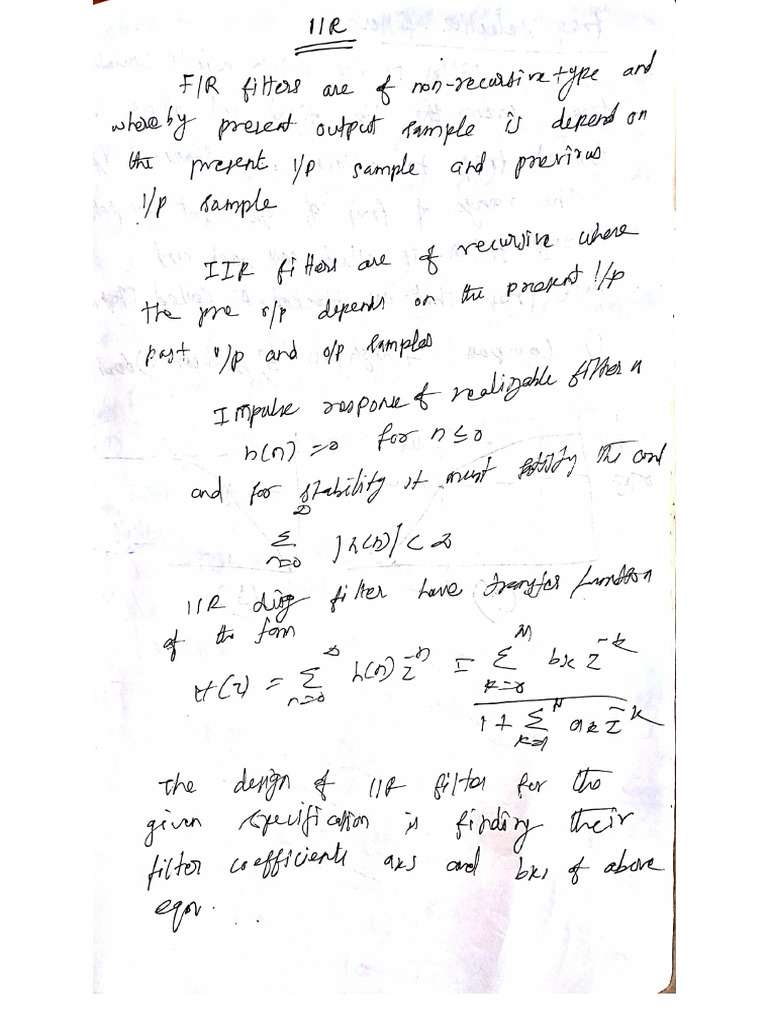 IIR
FIR filters are of non-recursive type and
whereby present output sample is depend on
the present i/p sample and previous
i/p sample
IIR filters are of recursive where
the pre o/p depends on the present i/p
past i/p and o/p samples
Impulse response of realizable filter is
h(n) = 0 for n ≤ 0
and for stability it must satisfy the cond
∞
Σ |h(n)| < ∞
n=0
IIR digi filter have transfer function
of the form
H(z) = Σ_{n=0}^{∞} h(n) z^{-n} = Σ_{k=0}^{M} b_k z^{-k}
1 + Σ_{k=1}^{N} a_k z^{-k}
The design of IIR filter for the
given specification is finding their
filter coefficients aks and bks of above
eqn.